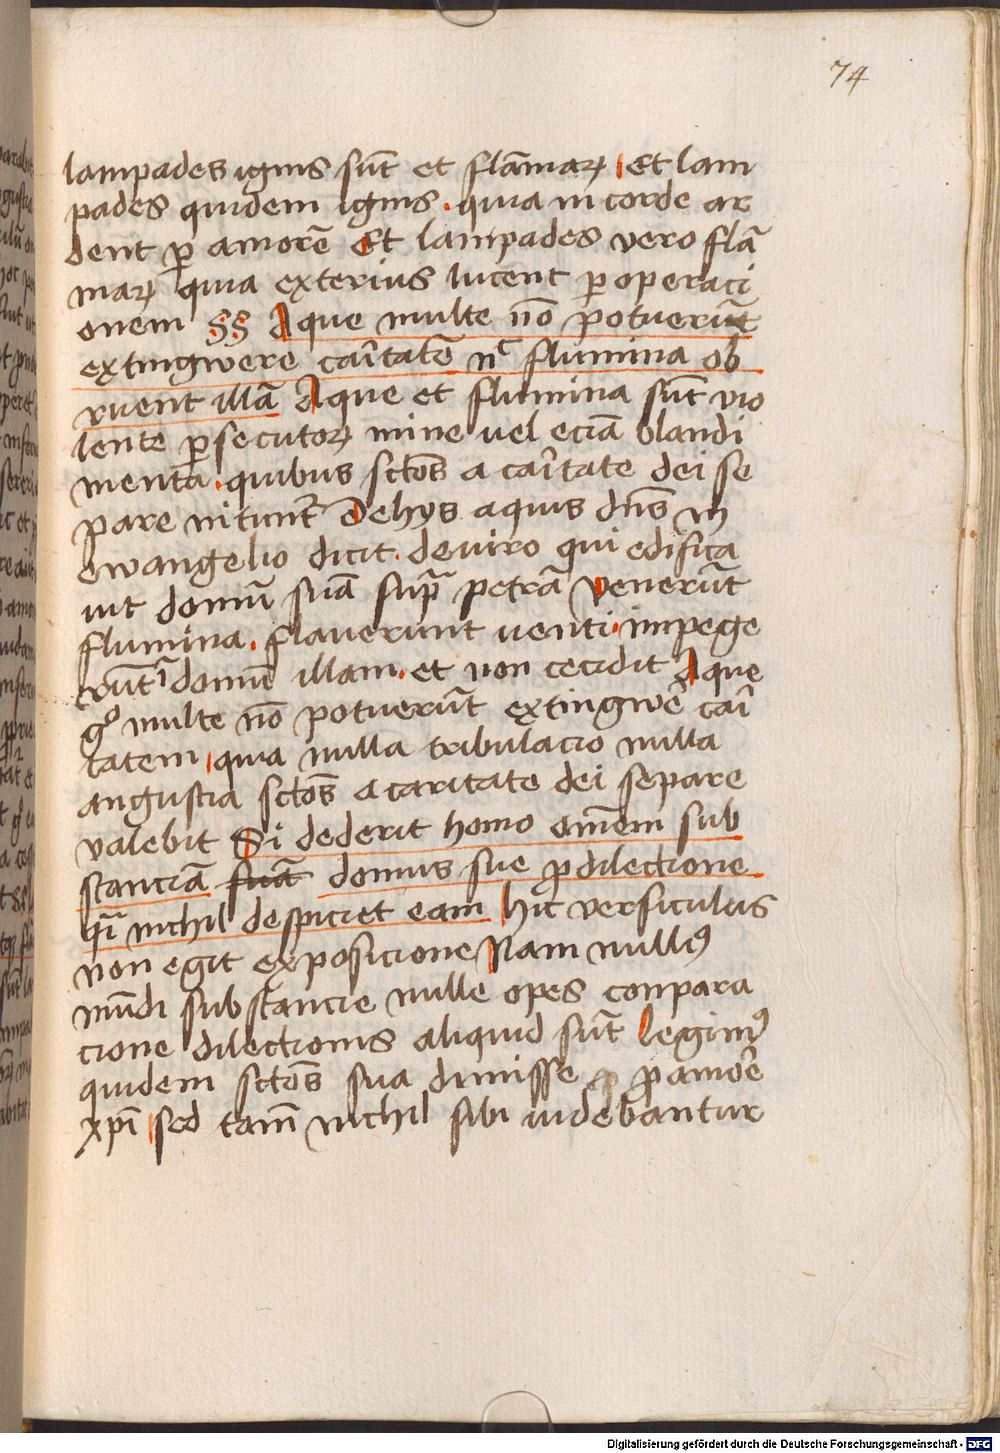 74
lampades ignis sūt et flāmaꝝ Et lam
pades quidem ignis . quia in corde ar
dent ꝑ amorē Et lampades vero flā
maꝝ quia exterius lucent ꝑ operaci
onem §§ Aque multe nō potuerūt
extingwere caītatē nͨ flumina ob
ruent illā Aque et flumina sūt vio
lente ꝑsecutoꝝ mine vel eciā blandi
menta . quibus sctōs a caītate dei se
pare nitunt᷑ De hys aquis dn̄s in
ewangelio dicit . de viro qui edifica
uit domū suā sup̄ petrā venerūt
flumina . flauerunt venti . impege
rūt ī domū illam . et non cecidit Aque
gͦ multe nō potuerūt extingwē caī
tatem quia nulla tribulacio nulla
angustia sctōs a caritate dei separe
valebit Si dederit homo om̄em sub
stanciā suā domus sue ꝓ dilectione
qͣi nichil despiciet eam hic versiculus
non egit exposicione Nam nullꝰ
mūdi substancie nulle opes conpara
cione dilectionis aliquid sūt legimꝰ
quidem sctōs sua dimisse ꝓ ꝓ amoē
xp̄i sed tam̄ nichil sibi videbantur
Digitalisierung gefördert durch die Deutsche Forschungsgemeinschaft - DFG